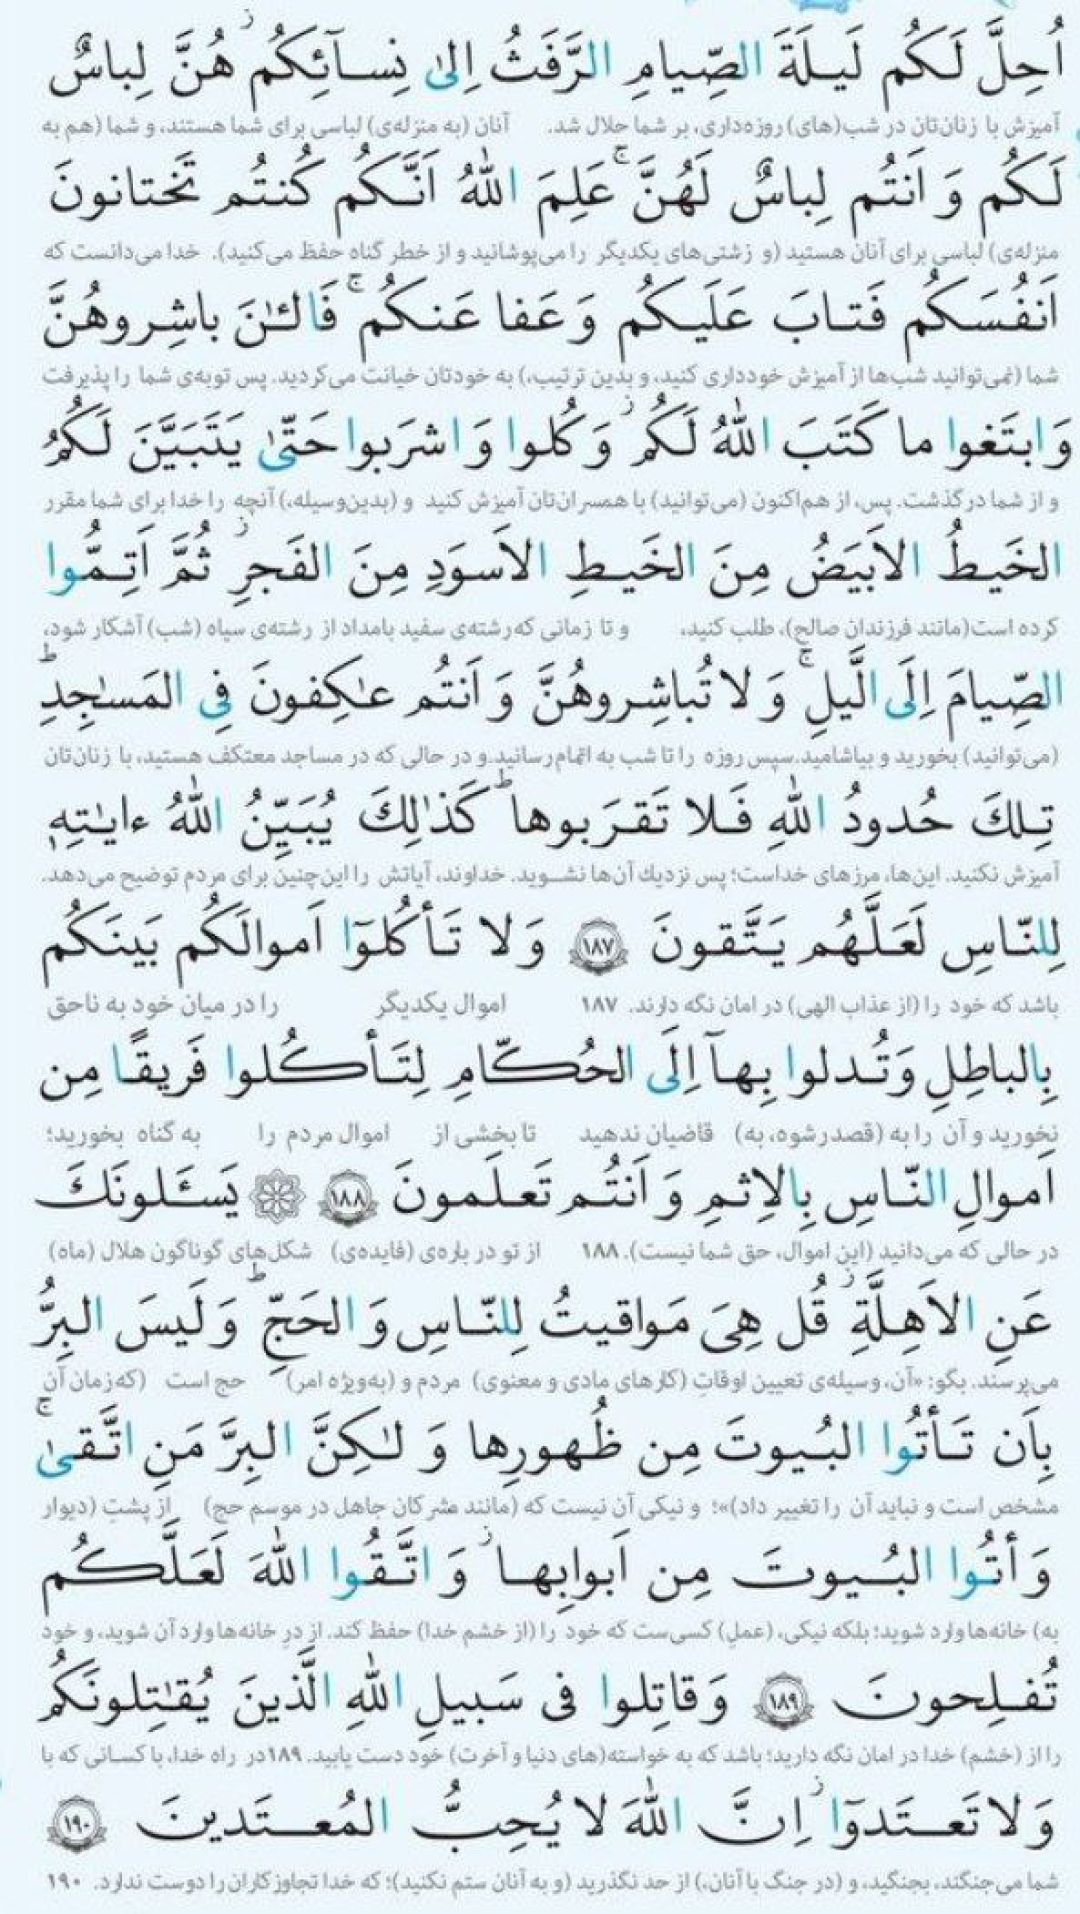 اُحِلَّ لَكُم لَيلَةَ الصِّيامِ الرَّفَثُ اِلىٰ نِسآئِكُم ۚ هُنَّ لِباسٌ
آمیزش با زنان‌تان در شب(های) روزه‌داری، بر شما حلال شد. آنان (به منزله‌ی) لباسی برای شما هستند، و شما (هم به
لَكُم وَ اَنتُم لِباسٌ لَهُنَّ ۚ عَلِمَ اللّٰهُ اَنَّكُم كُنتُم تَختانونَ
منزله‌ی) لباسی برای آنان هستید (و زشتی‌های یکدیگر را می‌پوشانید و از خطر گناه حفظ می‌کنید). خدا می‌دانست که
اَنفُسَكُم فَتابَ عَلَيكُم وَ عَفا عَنكُم ۚ فَالـٰٔنَ باشِروهُنَّ
شما (نمی‌توانید شب‌ها از آمیزش خودداری کنید، و بدین ترتیب،) به خودتان خیانت می‌کردید. پس توبه‌ی شما را پذیرفت
وَ ابتَغوا ما كَتَبَ اللّٰهُ لَكُم ۚ وَ كُلوا وَ اشرَبوا حَتّىٰ يَتَبَيَّنَ لَكُمُ
و از شما درگذشت. پس، از هم‌اکنون (می‌توانید) با همسران‌تان آمیزش کنید و (بدین‌وسیله،) آنچه را خدا برای شما مقرر
الخَيطُ الاَبيَضُ مِنَ الخَيطِ الاَسوَدِ مِنَ الفَجرِ ۖ ثُمَّ اَتِمُّوا
کرده است(مانند فرزندان صالح)، طلب کنید، و تا زمانی که رشته‌ی سفید بامداد از رشته‌ی سیاه (شب) آشکار شود،
الصِّيامَ اِلَى الَّيلِ ۚ وَ لا تُباشِروهُنَّ وَ اَنتُم عٰكِفونَ فِى المَسٰجِدِ ط
(می‌توانید) بخورید و بیاشامید.سپس روزه را تا شب به اتمام رسانید.و در حالی که در مساجد معتکف هستید، با زنان‌تان
تِلكَ حُدودُ اللّٰهِ فَلا تَقرَبوها ط كَذٰلِكَ يُبَيِّنُ اللّٰهُ ءايٰتِهٖ
آمیزش نکنید. این‌ها، مرزهای خداست؛ پس نزدیك آن‌ها نشوید. خداوند، آیاتش را این‌چنین برای مردم توضیح می‌دهد.
لِلنّاسِ لَعَلَّهُم يَتَّقونَ ١٨٧ وَ لا تَأكُلوٓا اَموالَكُم بَينَكُم
باشد که خود را (از عذاب الهی) در امان نگه دارند. ۱۸۷ اموال یکدیگر را در میان خود به ناحق
بِالباطِلِ وَ تُدلوا بِهآ اِلَى الحُكّامِ لِتَأكُلوا فَريقًا مِن
نخورید و آن را به (قصد رشوه، به) قاضیان ندهید تا بخشی از اموال مردم را به گناه بخورید؛
اَموالِ النّاسِ بِالاِثمِ وَ اَنتُم تَعلَمونَ ١٨٨ يَسـَٔلونَكَ
در حالی که می‌دانید (این اموال، حق شما نیست). ۱۸۸ از تو در باره‌ی (فایده‌ی) شکل‌های گوناگون هلال (ماه)
عَنِ الاَهِلَّةِ ز قُل هِىَ مَواقيتُ لِلنّاسِ وَ الحَجِّ ط وَ لَيسَ البِرُّ
می‌پرسند. بگو: «آن، وسیله‌ی تعیین اوقاتِ (کارهای مادی و معنوی) مردم و (به‌ویژه امر) حج است (که زمان آن
بِاَن تَأتُوا البُيوتَ مِن ظُهورِها وَ لٰكِنَّ البِرَّ مَنِ اتَّقىٰ ۚ
مشخص است و نباید آن را تغییر داد)»؛ و نیکی آن نیست که (مانند مشرکان جاهل در موسم حج) از پشت (دیوار
وَ أتُوا البُيوتَ مِن اَبوابِها ز وَ اتَّقُوا اللّٰهَ لَعَلَّكُم
به) خانه‌ها وارد شوید؛ بلکه نیکی، (عمل) کسی‌ست که خود را (از خشم خدا) حفظ کند. از درِ خانه‌ها وارد آن شوید، و خود
تُفلِحونَ ١٨٩ وَ قاتِلوا فى سَبيلِ اللّٰهِ الَّذينَ يُقٰتِلونَكُم
را از (خشم) خدا در امان نگه دارید؛ باشد که به خواسته(های دنیا و آخرت) خود دست یابید. ۱۸۹در راه خدا، با کسانی که با
وَ لا تَعتَدوٓا ز اِنَّ اللّٰهَ لا يُحِبُّ المُعتَدينَ ١٩٠
شما می‌جنگند، بجنگید، و (در جنگ با آنان،) از حد نگذرید (و به آنان ستم نکنید)؛ که خدا تجاوزکاران را دوست ندارد. ۱۹۰